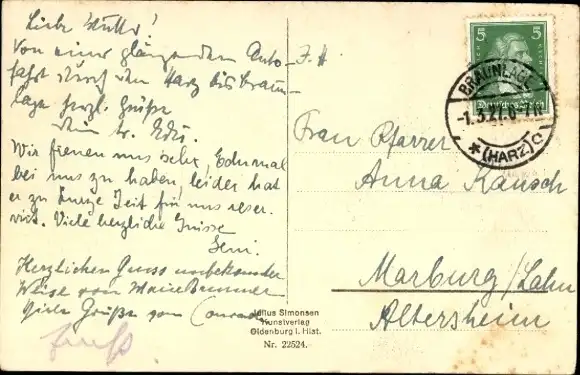 Liebe Mutter!
Von einer glänzenden Auto-
fahrt durch den Harz bis Braun-
lage herzl. Grüße
Dein tr. Edu.
Wir freuen uns sehr, Edu mal
bei uns zu haben, leider hat
er zu kurze Zeit für uns reser-
viert. Viele herzliche Grüsse
Leni.
Herzlichen Gruss unbekannter
Weise von Brunner
Viele Grüße von Conrad
Julius Simonsen
Kunstverlag
Oldenburg i. Hlst.
Nr. 22524.
5 5
Deutsches Reich
BRAUNLAGE
-1.3.27.6-7N
* (HARZ) c
Frau Pfarrer
Anna Kausch
Marburg/Lahn
Altersheim